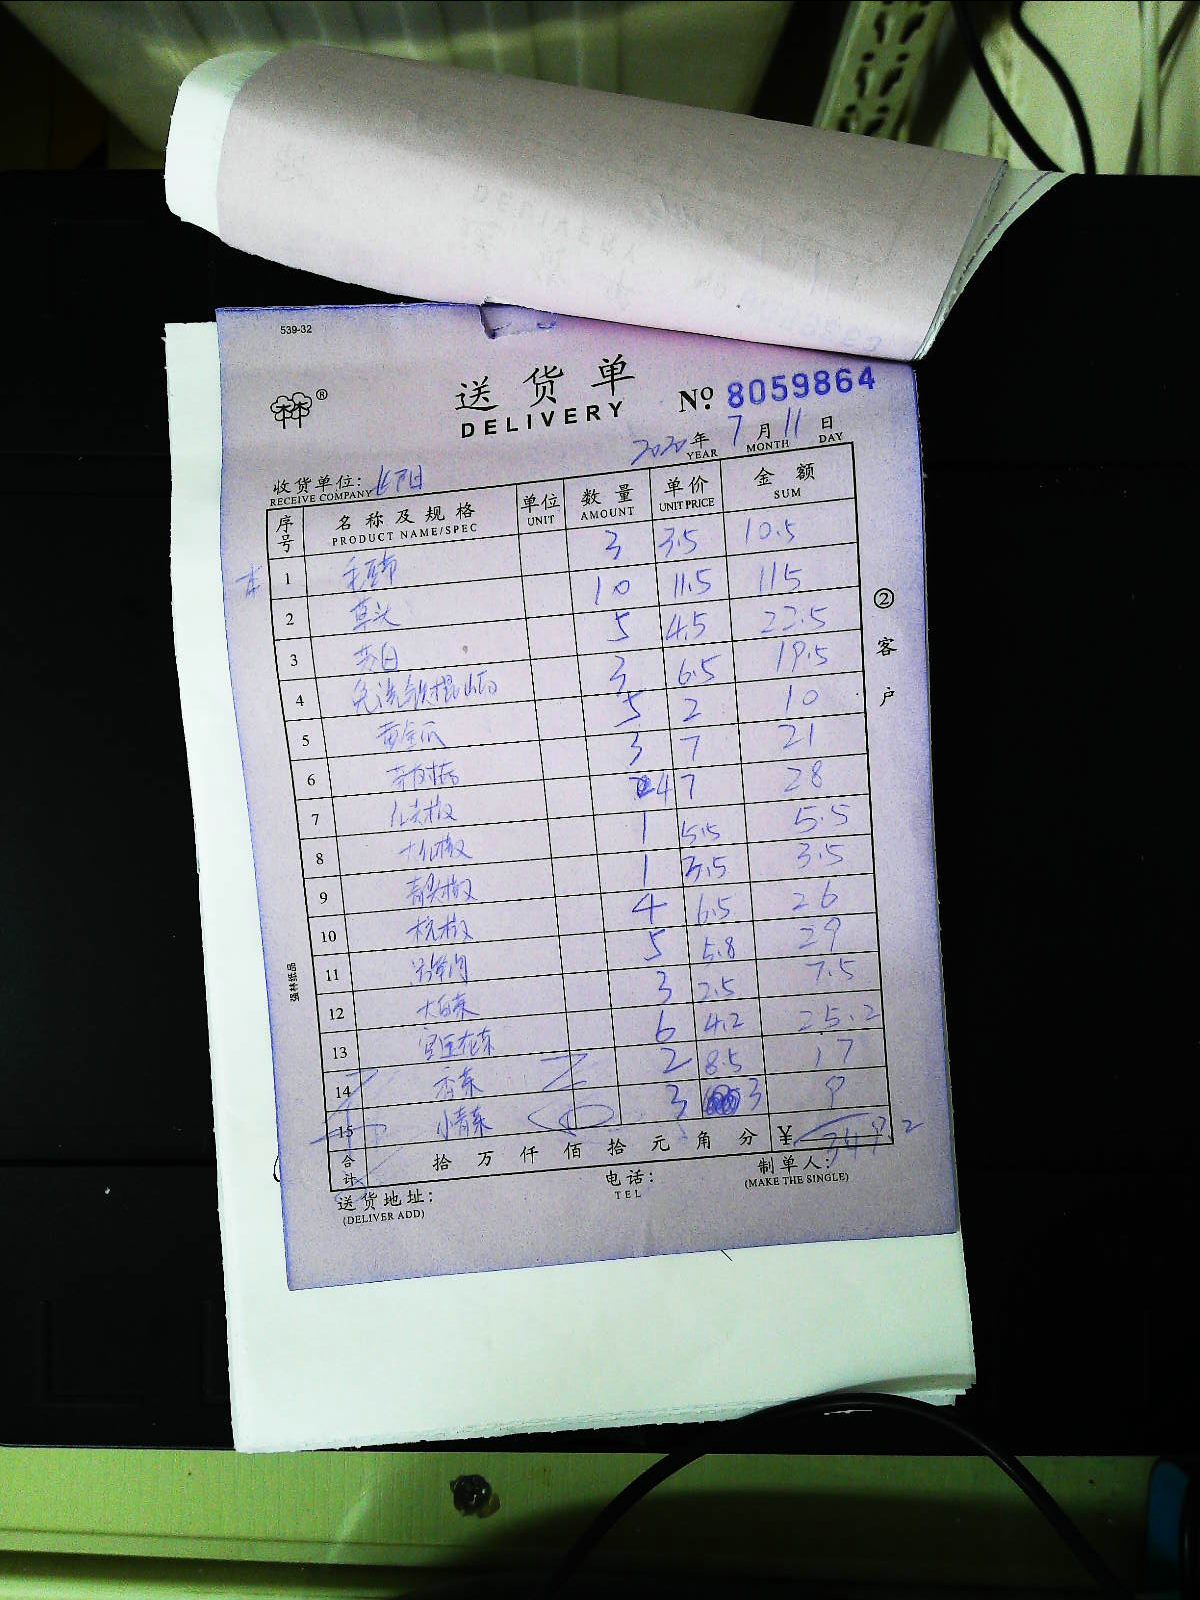 539-32
林®
送货单 № 8059864
DELIVERY
2020年 7月 11日
YEAR MONTH DAY
收货单位:
RECEIVE COMPANY
序号 名称及规格 单位 数量 单价 金额
PRODUCT NAME/SPEC UNIT AMOUNT UNIT PRICE SUM
1 毛豆节 3 3.5 10.5
2 草头 10 11.5 115
3 茭白 5 4.5 22.5
4 免洗铁棍山药 3 6.5 19.5
5 黄金瓜 5 2 10
6 3 7 21
7 红尖椒 4 7 28
8 大红椒 1 5.5 5.5
9 青尖椒 1 3.5 3.5
10 杭椒 4 6.5 26
11 5 5.8 29
12 大白菜 3 2.5 7.5
13 有花菜 6 4.2 25.2
14 香菜 2 8.5 17
15 小青菜 3 3 9
合计 拾 万 仟 佰 拾 元 角 分 ¥ 349.2
送货地址: 电话: 制单人:
(DELIVER ADD) TEL (MAKE THE SINGLE)
②客户
强林纸品